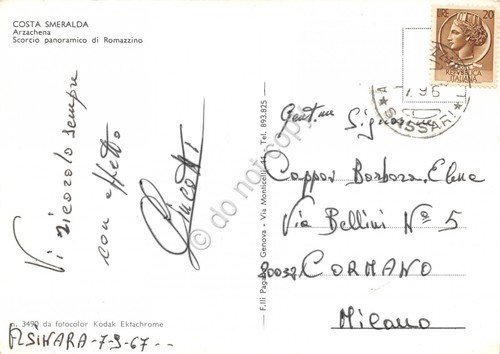 COSTA SMERALDA
Arzachena
Scorcio panoramico di Romazzino
Vi ricordo sempre
con affetto
n. 3490 da fotocolor Kodak Ektachrome
ASINARA-7-9-67--
F.lli Pagano - Genova - Via Monticelli 11 - Tel. 893.825
LIRE 20
REPUBBLICA
ITALIANA
SASSARI
Gent.me Signorine
Cappai Barbara, Elena
Via Bellini Nº 5
20032 CORMANO
Milano
© do not copy